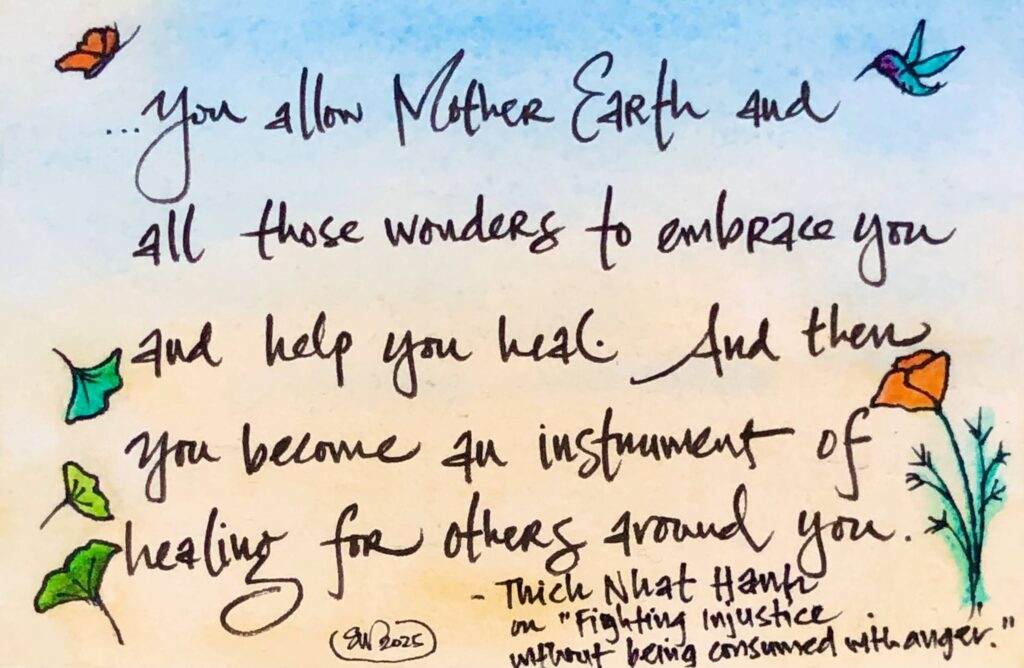 ...you allow Mother Earth and
all those wonders to embrace you
and help you heal. And then
you become an instrument of
healing for others around you.
- Thich Nhat Hanh
on "Fighting Injustice
without being consumed with anger."
EW 2025